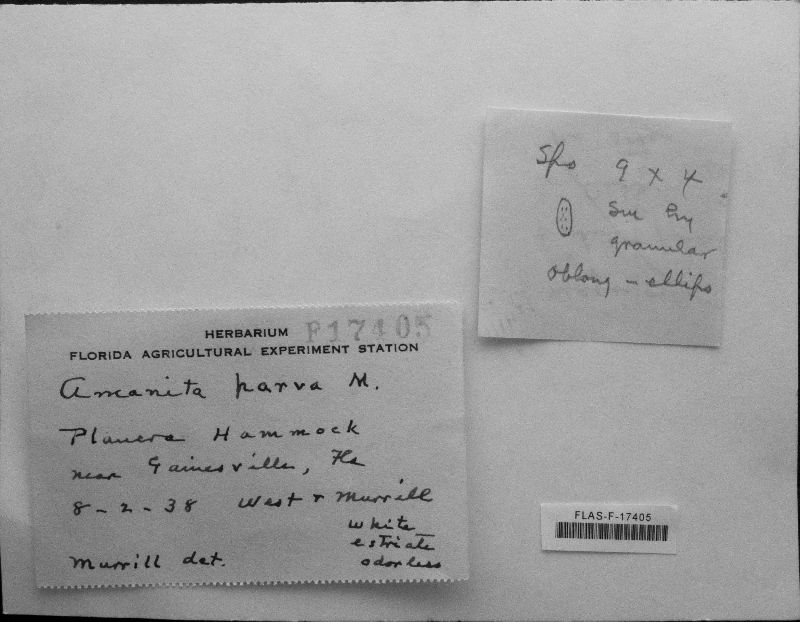 Spo 9 x 4
Sm hy
granular
oblong - ellips
HERBARIUM F17405
FLORIDA AGRICULTURAL EXPERIMENT STATION
Amanita parva M.
Planera Hammock
near Gainesville, Fla
8-2-38 West & Murrill
white
estriate
Murrill det. odorless
FLAS-F-17405